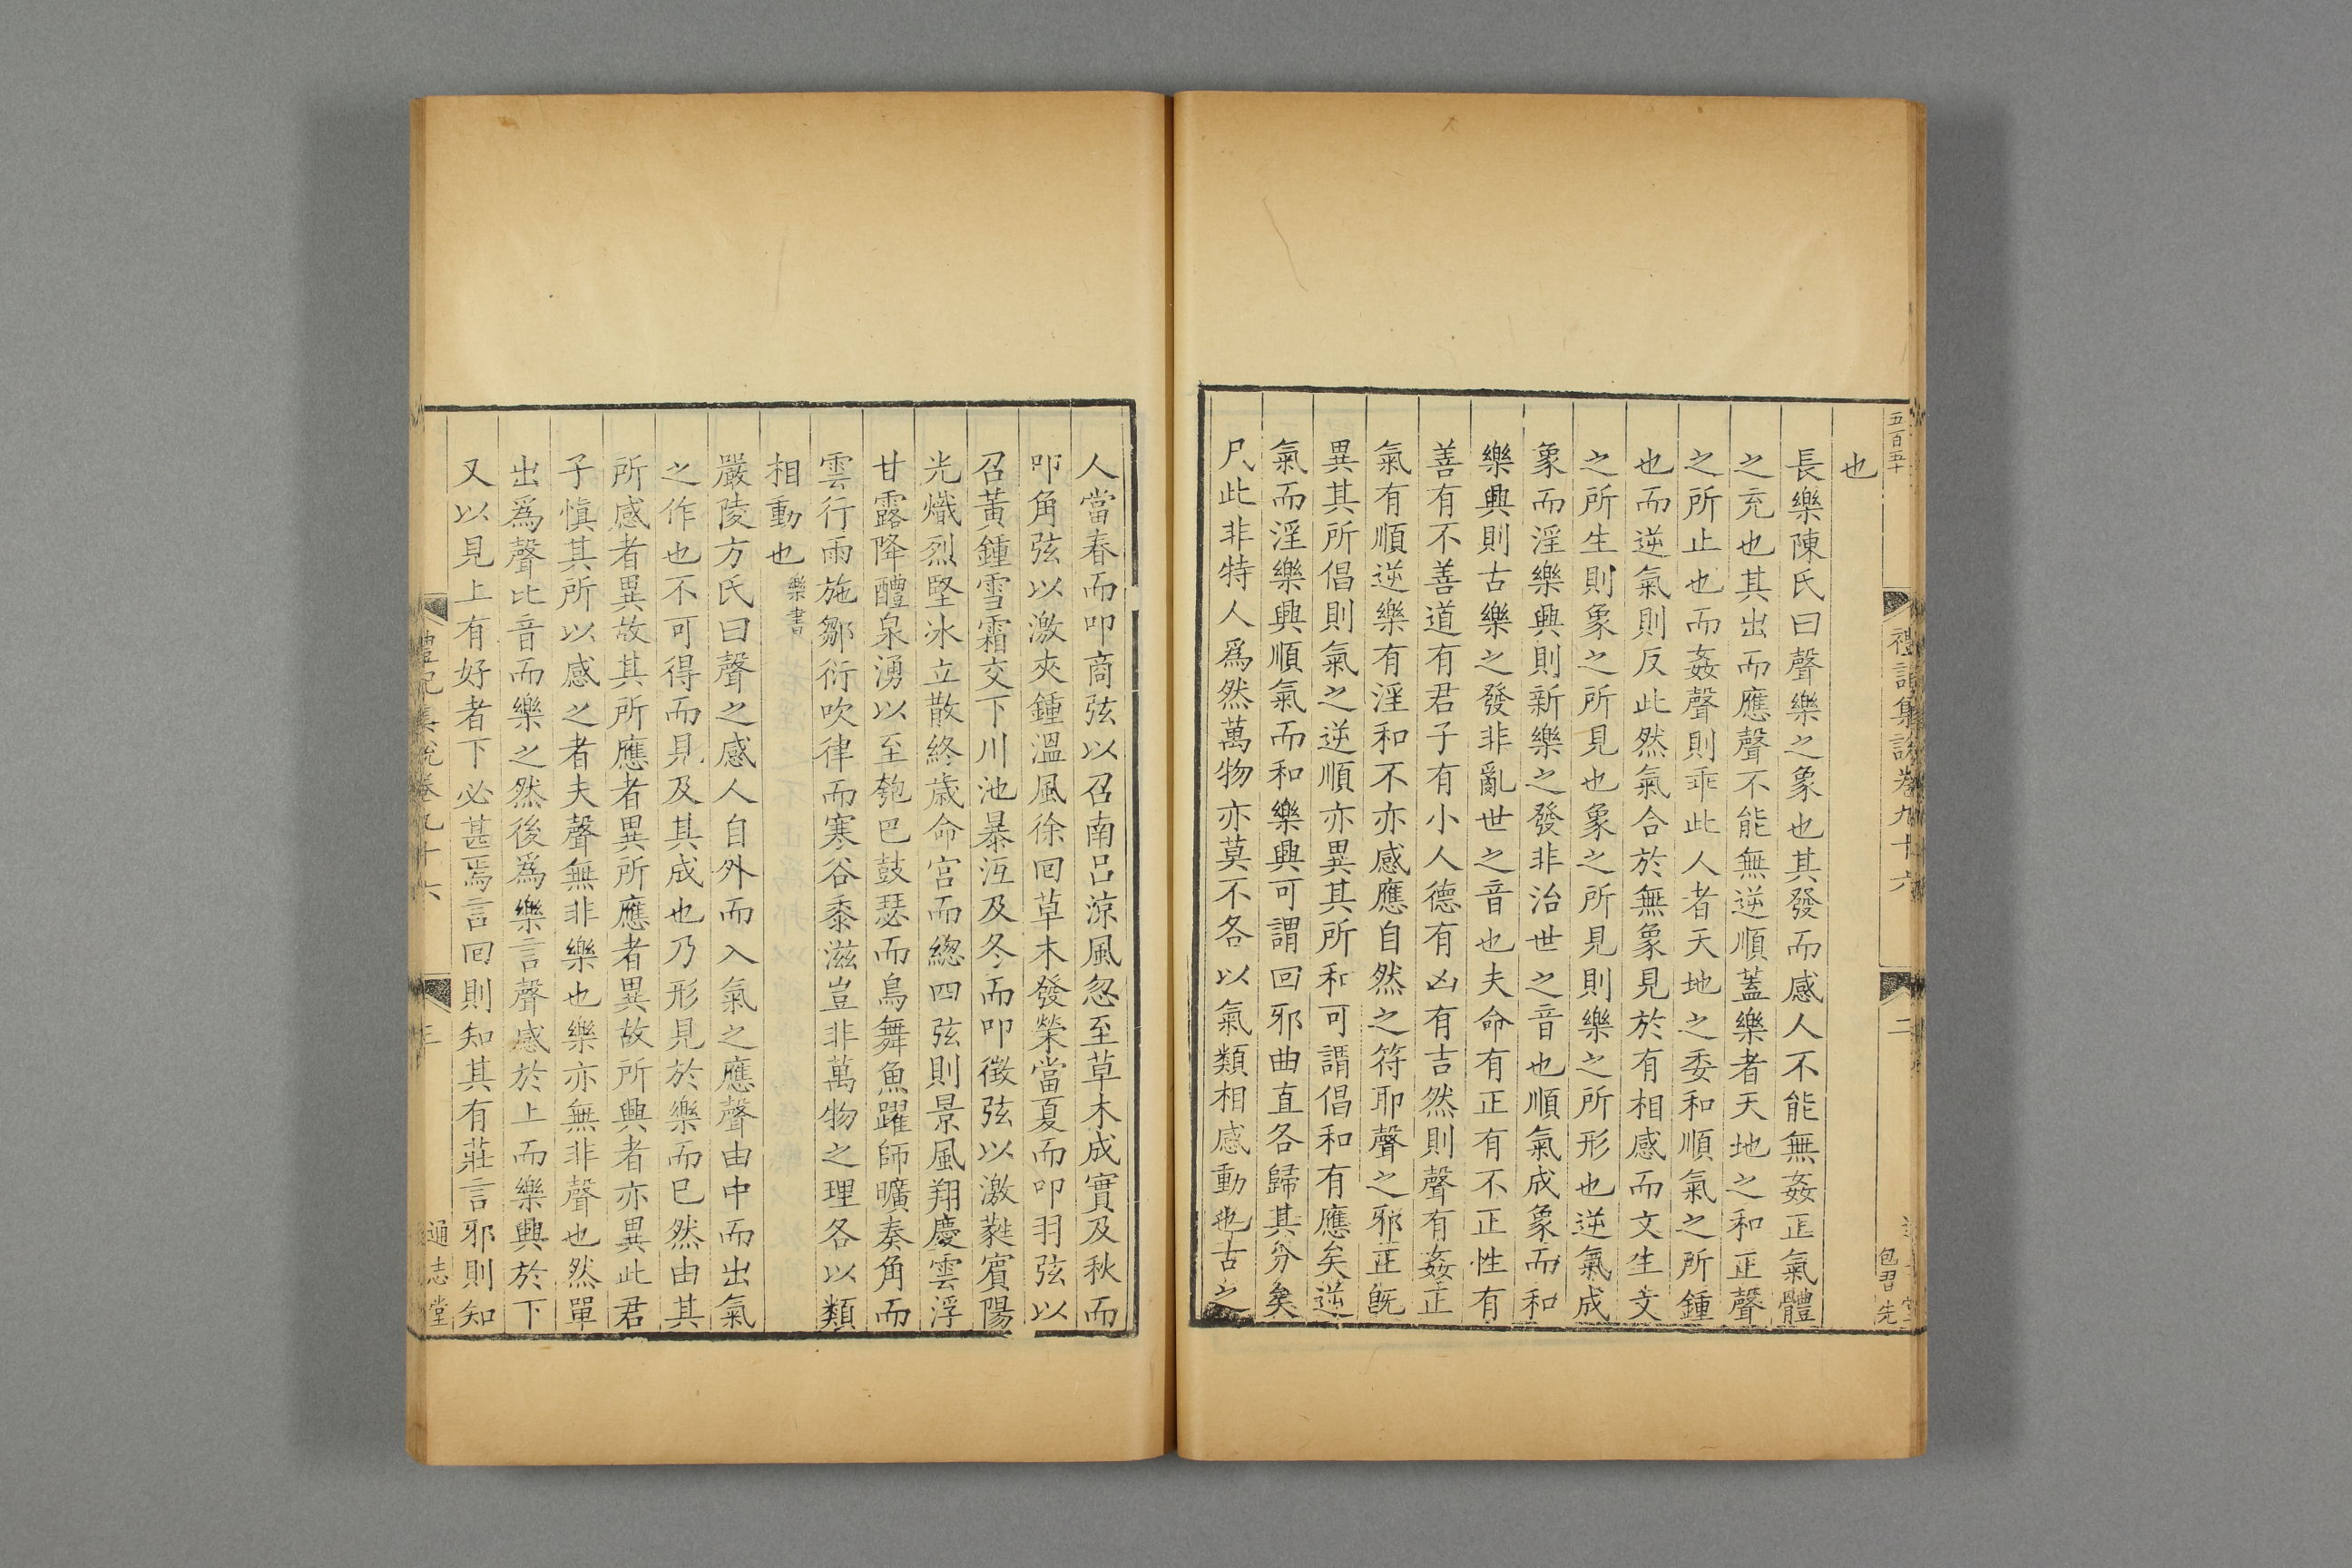 五百五十
禮記集說卷九十六
二
包習先
也
長樂陳氏曰聲樂之象也其發而感人不能無姦正氣體
之充也其出而應聲不能無逆順蓋樂者天地之和正聲
之所止也而姦聲則乖此人者天地之委和順氣之所鍾
也而逆氣則反此然氣合於無象見於有相感而文生文
之所生則象之所見也象之所見則樂之所形也逆氣成
象而淫樂興則新樂之發非治世之音也順氣成象而和
樂興則古樂之發非亂世之音也夫命有正有不正性有
善有不善道有君子有小人德有凶有吉然則聲有姦正
氣有順逆樂有淫和不亦感應自然之符耶聲之邪正旣
異其所倡則氣之逆順亦異其所和可謂倡和有應矣逆
氣而淫樂興順氣而和樂興可謂回邪曲直各歸其分矣
凡此非特人爲然萬物亦莫不各以氣類相感動也古之
人當春而叩商弦以召南呂涼風忽至草木成實及秋而
叩角弦以激夾鍾溫風徐回草木發榮當夏而叩羽弦以
召黃鍾雪霜交下川池暴沍及冬而叩徵弦以激蕤賓陽
光熾烈堅冰立散終歲命宮而總四弦則景風翔慶雲浮
甘露降醴泉湧以至匏巴鼓瑟而鳥舞魚躍師曠奏角而
雲行雨施鄒衍吹律而寒谷黍滋豈非萬物之理各以類
相動也樂書
嚴陵方氏曰聲之感人自外而入氣之應聲由中而出氣
之作也不可得而見及其成也乃形見於樂而已然由其
所感者異故其所應者異所應者異故所興者亦異此君
子愼其所以感之者夫聲無非樂也樂亦無非聲也然單
出爲聲比音而樂之然後爲樂言聲感於上而樂興於下
又以見上有好者下必甚焉言回則知其有莊言邪則知
禮記集說卷九十六
三
通志堂